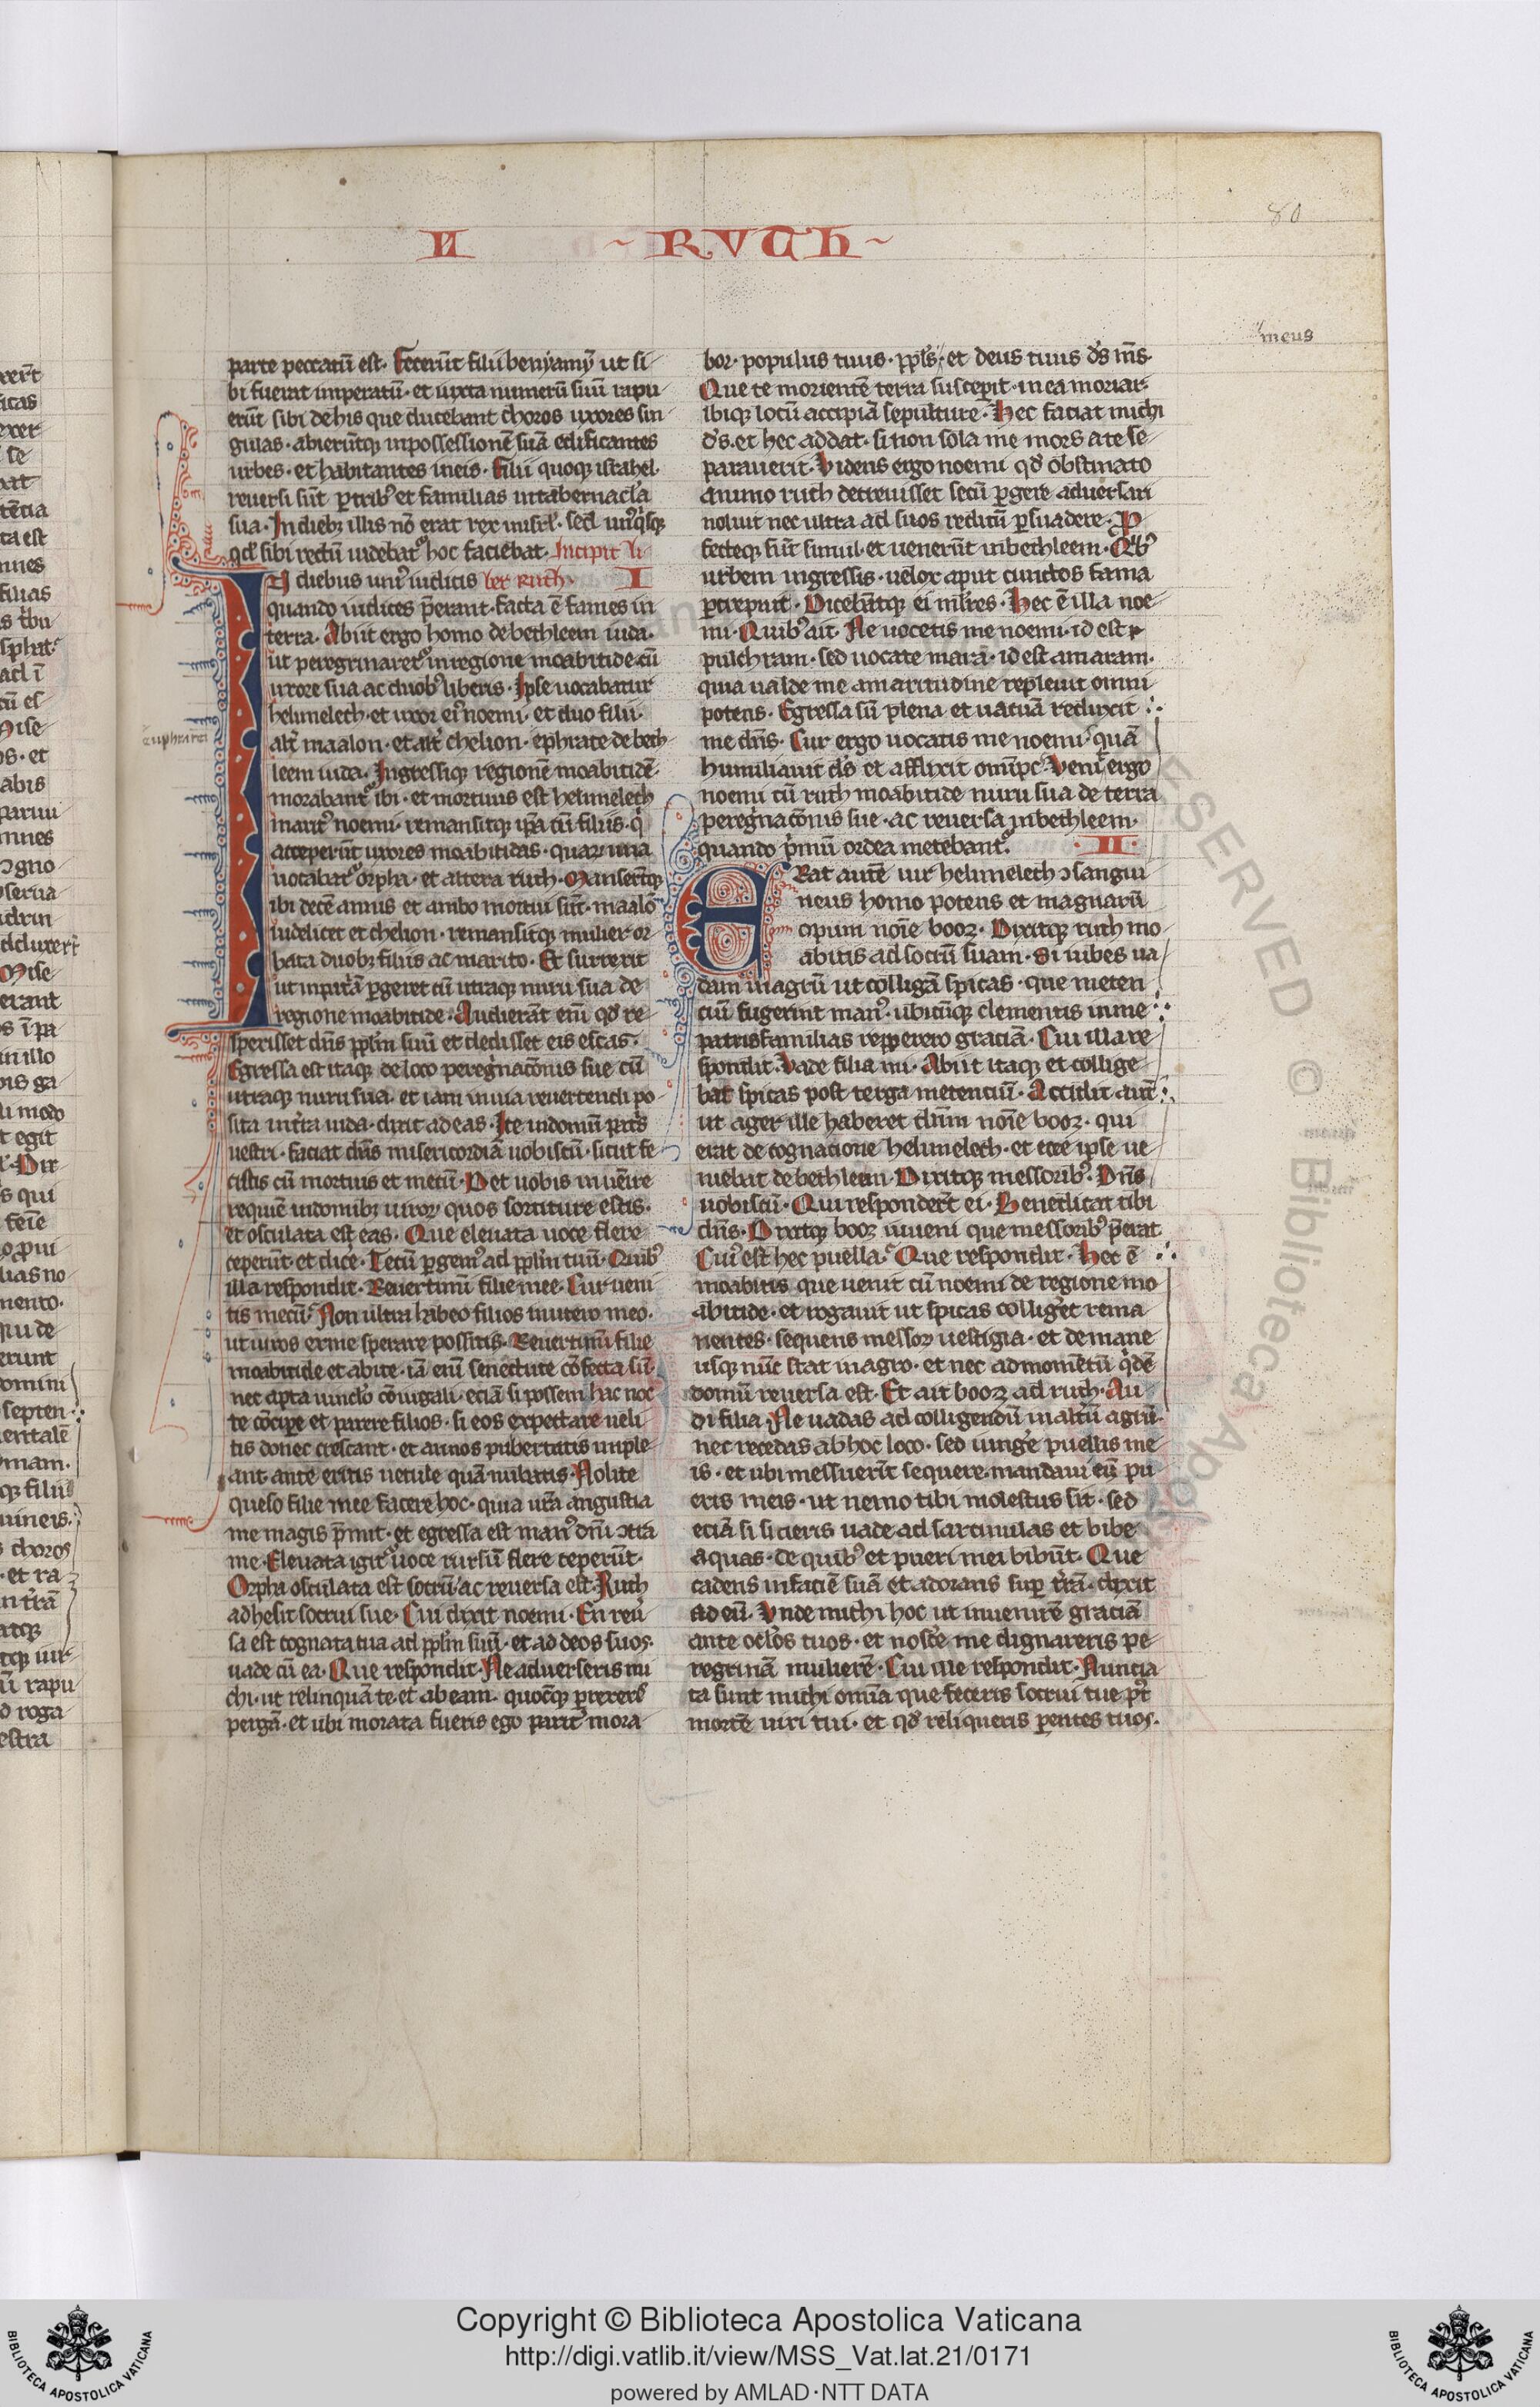 80
N ~ RVTH ~
meus
parte peccatū est. Fecerūt filii benyamȳ ut si-
bi fuerat imperatū. et iuxta numerū suū rapu-
erūt sibi de his que ducebant choros uxores sin-
gulas. abierūtq; in possessionē suā edificantes
urbes. et habitantes in eis. filii quoq; israhel.
reuersi sūt ꝑ tribꝰ et familias in tabernacl'a
sua. In diebꝫ illis nō erat rex in isrl'. sed unꝰqͥsq;
qd' sibi rectū uidebatᷣ hoc faciebat. Incipit li-
IN diebus uniꝰ iudicis ber Ruth. I
quando iudices p̄erant. facta ē fames in
terra. Abiit ergo homo de bethleem iuda.
ut peregrinaretᷣ in regione moabitide. cū
uxore sua ac duobꝰ liberis. Ipse uocabatur
helimelech. et uxor eiꝰ noemi. et duo filii.
alt' maalon. et alt' chelion. ephrate de beth-
leem iuda. Ingressiq; regionē moabitidē.
morabantᷣ ibi. et mortuus est helimelech
maritꝰ noemi. remansitq; ip̄a cū filiis. qͥ
acceperūt uxores moabitidas. quarꝫ una
uocabatᷣ orpha. et altera ruth. Manserūtq;
ibi decē annis et ambo mortui sūt. maalō
uidelicet et chelion. remansitq; mulier or-
bata duobꝫ filiis ac marito. Et surrexit
ut in pat'ā ꝑgeret cū utraq; nuru sua de
regione moabitide. Audierāt enī qd' re-
spexisset dn̄s pp̄l'm suū et dedisset eis escas.
Egressa est itaq; de loco peregͥnac̄onis sue cū
utraq; nuru sua. et iam in uia reuertendi po-
sita in t'ra iuda. dixit ad eas. Ite in domū mat's
uestri. faciat dn̄s misericordiā uobiscū. sicut fe-
cistis cū mortuis et mecū. Det uobis inuenire
requiē in domibꝫ uirorꝫ quos sortiture estis.
et osculata est eas. Que eleuata uoce flere
ceperūt. et dice'. Tecū ꝑgemꝰ ad pp̄l'm tuū. Quibꝰ
illa respondit. Reuertimī filie mee. Cur ueni-
tis mecū? Non ultra habeo filios in utero meo.
ut uiros ex me sperare possitis. Reuertimī filie
moabitide et abite. iā enī senectute cōfecta sū.
nec apta uinclo cōiugali. eciā si possem hac noc-
te cōciꝑe et parere filios. si eos expectare ueli-
tis donec crescant. et annos pubertatis imple-
ant ante eritis uetule quā nubatis. Nolite
queso filie mee facere hoc. quia ur̄a angustia
me magis p̄mit. et egressa est manꝰ dn̄i ↄtra
me. Eleuata igitᷣ uoce rursū flere ceperūt.
Orpha osculata est socrū. ac reuersa est. Ruth
adhesit socrui sue. Cui dixit noemi. En reu'-
sa est cognata tua ad pp̄l'm suū. et ad deos suos.
uade cū ea. Que respondit. Ne aduerseris mi-
chi. ut relinquā te et abeam. quocūq; ꝑrexeris
pergā. et ubi morata fueris ego parit' mora-
bor. populus tuus. pp̄l's. et deus tuus d's m̄s.
Que te morientē terra susceperit. in ea moriar.
ibiq; locū accipiā sepulture. Hec faciat michi
d's. et hec addat. si non sola me mors a te se-
parauerit. Videns ergo noemi qd' obstinato
animo ruth decreuisset secū ꝑgere aduersari
noluit nec ultra ad suos reditū ꝑsuadere. P-
fecteq; sūt simul. et uenerūt in bethleem. Qͥbꝰ
urbem ingressis. uelox aput cunctos fama
ꝑcrepuit. Dicebātq; ei ml'res. Hec ē illa noe-
mi. Quibꝰ ait. Ne uocetis me noemi. id est
pulchram. sed uocate marā. id est amaram.
quia ualde me amaritudine repleuit omni-
potens. Egressa sū plena et uacuā reduxit
me dn̄s. Cur ergo uocatis me noemi? quā
humiliauit d's et afflixit omīpc̄. Venit ergo
noemi cū ruth moabitide nuru sua de terra
peregͥnac̄onis sue. ac reuersa in bethleem.
quando pͥmū ordea metebantᷣ. II.
ERat autē uir helimelech ↄsangui-
neus homo potens et magnarū
opum noīe booz. Dixitq; ruth mo-
abitis ad socrū suam. Si iubes ua-
dam in agrū ut colligā spicas. que meten-
ciū fugerint manꝰ. ubicūq; clementis in me
patrisfamilias repperero graciā. Cui illa re-
spondit. Vade filia mi. Abiit itaq; et collige-
bat spicas post terga metenciū. Accidit aūt
ut ager ille haberet dn̄m noīe booz. qui
erat de cognacione helimelech. et ecce ipse ue-
niebat de bethleem. Dixitq; messoribꝰ. Dn̄s
uobiscū. Qui responderūt ei. Benedicat tibi
dn̄s. Dixitq; booz iuueni que messoribꝰ p̄erat.
Cuiꝰ est hec puella? Que respondit. Hec ē
moabitis que uenit cū noemi de regione mo-
abitide. et rogauit ut spicas collig'et rema-
nentes. sequens messorꝫ uestigia. et de mane
usq; nūc stat in agro. et nec ad momētū qͥdē
domū reuersa est. Et ait booz ad ruth. Au-
di filia. Ne uadas ad colligendū in alt'ū agrū.
nec recedas ab hoc loco. sed iunge' puellis me-
is. et ubi messuerīt sequere. mandaui eī pu-
eris meis. ut nemo tibi molestus sit. sed
eciā si sicieris uade ad sarcinulas et bibe
aquas. de quibꝰ et pueri mei bibūt. Que
cadens in faciē suā et adorans suꝑ t'rā. dixit
ad eū. Vnde michi hoc ut inuenirē graciā
ante oclo's tuos. et nosce' me dignareris pe-
regrinā mulierē. Cui ille respondit. Nuncia-
ta sunt michi omīa que feceris socrui tue pꝰt
mortē uiri tui. et qd' reliqueris ꝑentes tuos.
Copyright © Biblioteca Apostolica Vaticana
http://digi.vatlib.it/view/MSS_Vat.lat.21/0171
powered by AMLAD·NTT DATA
BIBLIOTECA APOSTOLICA VATICANA
BIBLIOTECA APOSTOLICA VATICANA